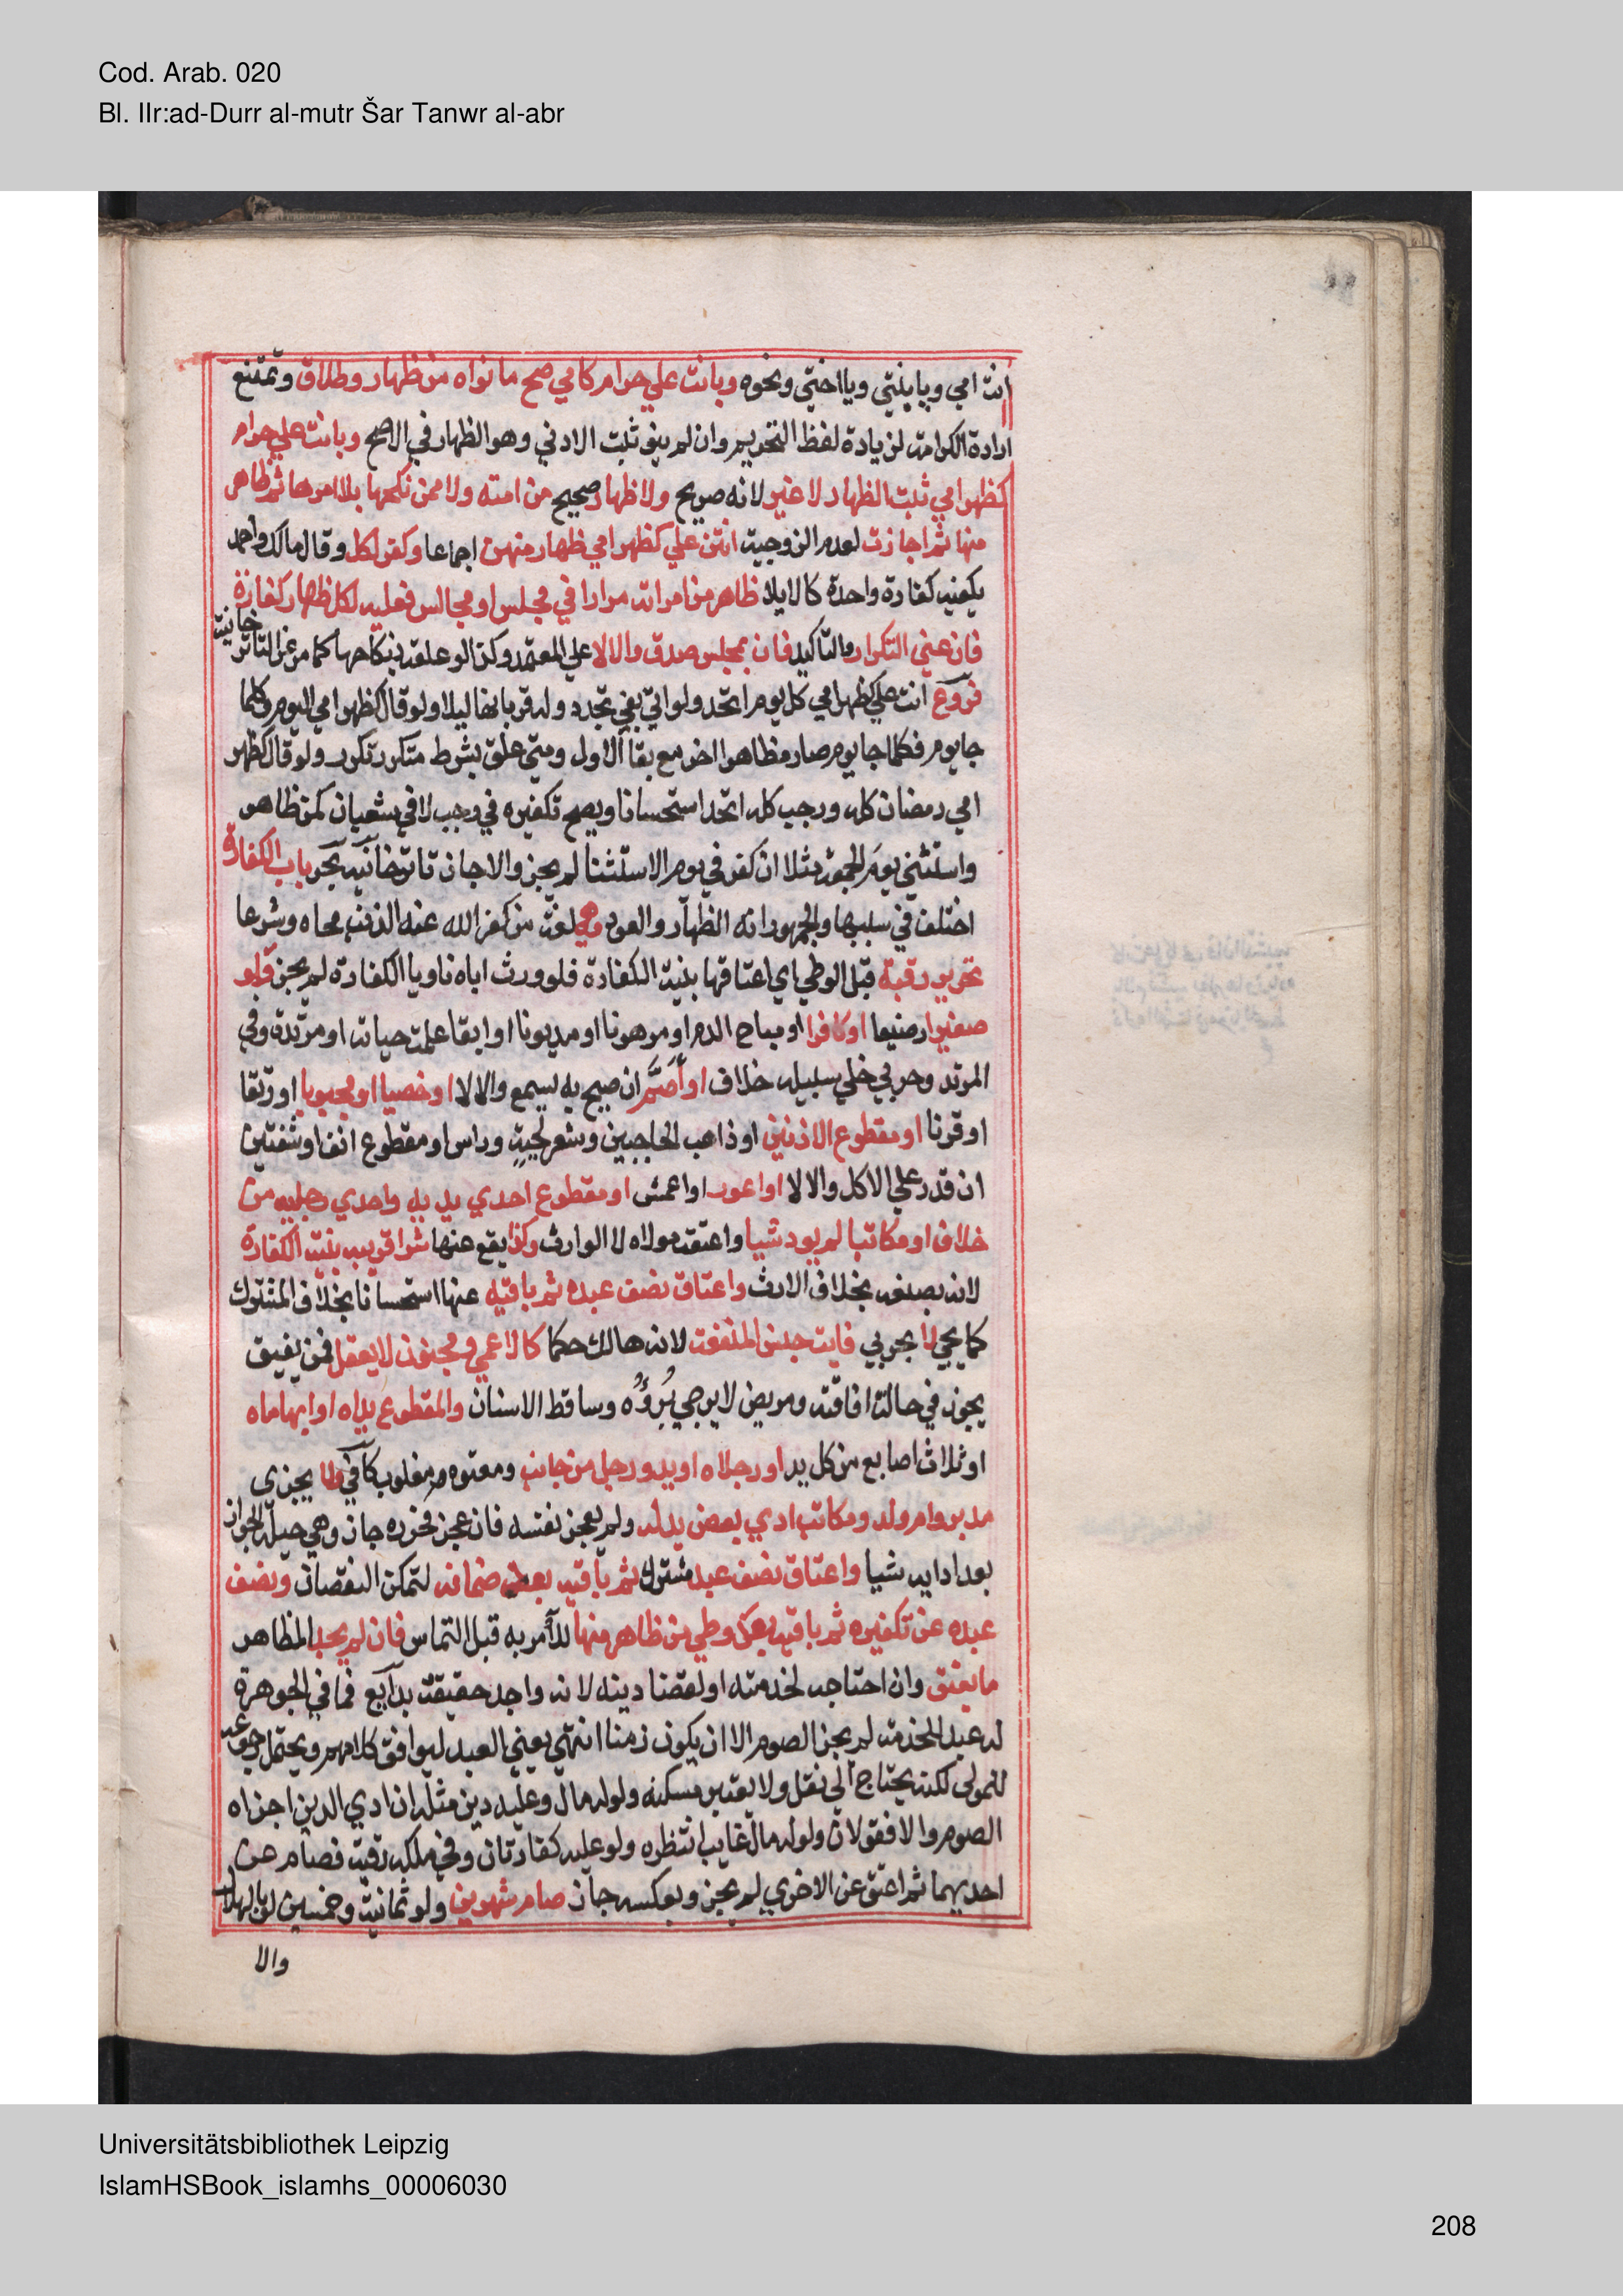 Cod. Arab. 020
Bl. IIr:ad-Durr al-mutr Šar Tanwr al-abr
انت امي ويا بنتي ويا اختي ونحوه وبانت علي حرام كامي صح ما نواه من ظهار وطلاق وتمتنع
ارادة الكرامة لزيادة لفظ التحريم وان لم ينو ثبت الادني وهو الظهار في الاصح وبانت علي حرام
كظهر امي ثبت الظهار لا غير لانه صريح ولا ظهار صحيح من امته ولا ممن نكحها بلا امرها ثم ظاهر
منها ثم اجازت لعدم الزوجية انتن علي كظهر امي ظهار منهن اجماعا وكفر لكل وقال مالك واحمد
يكفيه كفارة واحدة كالايلا ظاهر من امراته مرارا في مجلس او مجالس فعليه لكل ظهار كفارة
فان عني التكرار والتاكيد فان بمجلس صدق والا لا علي المعتمد وكذا لو علقه بنكاحها كما مر عن التاتر
خانية
فروع انت علي كظهر امي كل يوم اتحد ولو اتي بفي تجدد وله قربانها ليلا ولو قال كظهر امي اليوم وكلما
جا يوم فكلما جا يوم صار مظاهرا اخر مع بقا الاول ومتي علق بشرط متكرر تكرر ولو قال كظهر
امي رمضان كله ورجب كله اتحد استحسانا ويصح تكفيره في رجب لا في شعبان كمن ظاهر
واستثني يوم الجمعة مثلا ان كفر في يوم الاستثنا لم يجز والا جاز تاترخانيه بحر باب الكفارة
اختلف في سببها والجمهور انه الظهار والعود وهي لغة من كفر الله عنه الذنب محاه وشرعا
تحرير رقبة قبل الوطي اي اعتاقها بنية الكفارة فلو ورث اباه ناويا الكفارة لم يجز ولو
صغيرا رضيعا او كافرا او مباح الدم او مرهونا او مديونا او ابقا علمت حياته او مرتدة وفي
المرتد وحربي خلي سبيله خلاف او اصم ان صيح به يسمع والا لا او خصيا او مجبوبا او رتقا
او قرنا او مقطوع الاذنين او ذاهب الحاجبين وشعر لحية وراس او مقطوع انف او شفتين
ان قدر علي الاكل والا لا او اعور او اعمش او مقطوع احدي يديه واحدي رجليه من
خلاف او مكاتبا لم يود شيا واعتقه مولاه لا الوارث وكذا يقع عنها شرا قريبه بنية الكفارة
لانه بصنعه بخلاف الارث واعتاق نصف عبده ثم باقيه عنها استحسانا بخلاف المشترك
كما يجي لا يجزي فايت جنس المنفعة لانه هالك حكما كالاعمي ومجنون لا يعقل فمن يفيق
يجوز في حالة افاقته ومريض لا يرجي برؤه وساقط الاسنان والمقطوع يداه او ابهاماه
او ثلاث اصابع من كل يد او رجلاه او يد ورجل من جانب ومعتوه ومغلوب كافي ولا يجزي
مدبر وام ولد ومكاتب ادي بعض بدله ولم يعجز نفسه فان عجز فحرره جاز وهي حيلة الجواز
بعد ادايه شيا واعتاق نصف عبد مشترك ثم باقيه بعد ضمانه لتمكن النقصان ونصف
عبده عن تكفيره ثم باقيه بعد وطي من ظاهر منها للامر به قبل التماس فان لم يجد المظاهر
ما يعتق وان احتاجه لخدمته او لقضا دينه لانه واجد حقيقة بدايع فما في الجوهرة
له عبد للخدمة لم يجز الصوم الا ان يكون زمنا انتهي يعني العبد ليوافق كلامهم ويحتمل رجوعه
للمولي لكنه يحتاج الي نقل ولا يعتبر مسكنه ولو له مال وعليه دين مثله ان ادي الدين اجزاه
الصوم والا فقولان ولو له مال غايب انتظره ولو عليه كفارتان وفي ملكه رقبة فصام عن
احديهما ثم اعتق عن الاخري لم يجز وبعكسه جاز صام شهرين ولو ثمانية وخمسين لو بالهلال
والا
Universitätsbibliothek Leipzig
IslamHSBook_islamhs_00006030
208